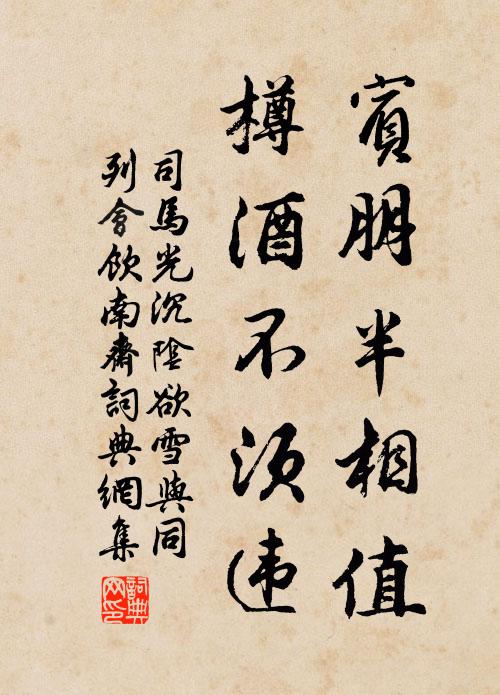 賓朋半相值
樽酒不须违
司馬光沉陰欲雪與同
列會飲南齋詞典網集
詞典
网印